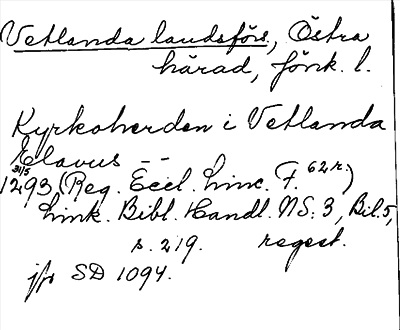 Vetlanda landsförs., Östra
härad, Jönk. l.
Kyrkoherden i Vetlanda
Elavus _ _
31/5
1293, (Reg. Eccl. Linc. F. 62 r.)
Link. Bibl. Handl. NS: 3, Bil. 5,
s. 219. regest.
jfr SD 1094.